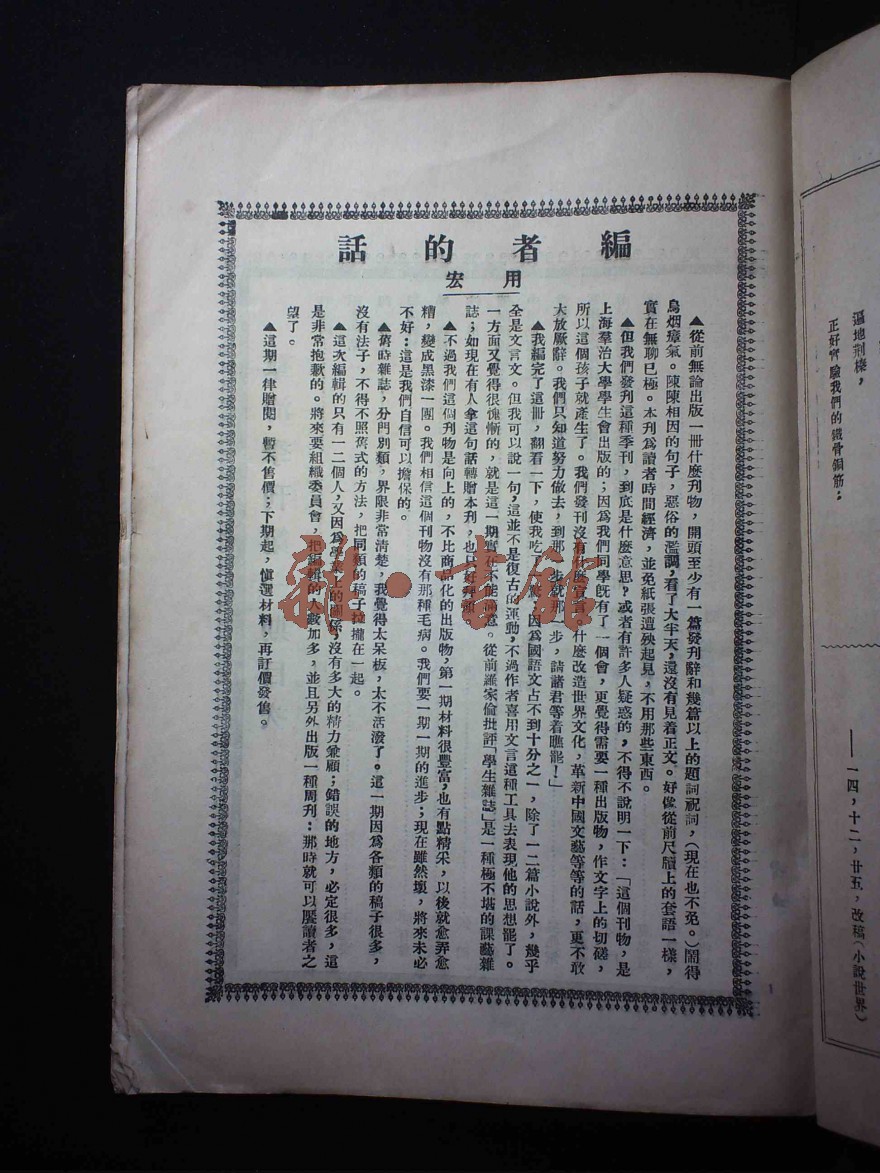 遍地荆榛，
正好實驗我們的鐵骨銅筋；
——一四，十二，廿五，改稿（小說世界）
編者的話
用宏
▲從前無論出版一冊什麼刊物，開頭至少有一篇發刊辭和幾篇以上的題詞祝詞，（現在也不免。）鬧得
烏烟瘴氣。陳陳相因的句子，惡俗的濫調，看了大半天，還沒有見着正文。好像從前尺牘上的套語一樣，
實在無聊已極。本刊爲讀者時間經濟，並免紙張遭殃起見，不用那些東西。
▲但我們發刊這種季刊，到底是什麼意思？或者有許多人疑惑的，不得不說明一下：「這個刊物，是
上海羣治大學學生會出版的；因爲我們同學旣有了一個會，更覺得需要一種出版物，作文字上的切磋，
所以這個孩子就產生了。我們發刊沒有什麼宣言，什麼改造世界文化，革新中國文藝等等的話，更不敢
大放厥辭。我們只知道努力做去，到那一步就那一步，請諸君等着瞧罷！」
▲我編完了這冊，翻看一下，使我吃了一驚，因爲國語文占不到十分之一，除了一二篇小說外，幾乎
全是文言文。但我可以說一句，這並不是復古的運動，不過作者喜用文言這種工具去表現他的思想罷了。
一方面又覺得很愧慚的，就是這一期實在不能滿意。從前羅家倫批評「學生雜誌」是一種極不堪的課藝雜
誌；如現在有人拿這句話轉贈本刊，也只好拜領。
▲不過我們這個刊物是向上的，不比商品化的出版物，第一期材料很豐富，也有點精采，以後就愈弄愈
糟，變成黑漆一團。我們相信這個刊物沒有那種毛病。我們要一期一期的進步；現在雖然壞，將來未必
不好：這是我們自信可以擔保的。
▲舊時雜誌，分門別類，界限非常清楚，我覺得太呆板，太不活潑了。這一期因爲各類的稿子很多，
沒有法子，不得不照舊式的方法，把同類的稿子拉攏在一起。
▲這次編輯的只有一二個人，又因爲學業上的關係，沒有多大的精力兼顧；錯誤的地方，必定很多，這
是非常抱歉的。將來要組織委員會，把編輯的人數加多，並且另外出版一種周刊：那時就可以饜讀者之
望了。
▲這期一律贈閱，暫不售價；下期起，愼選材料，再訂價發售。